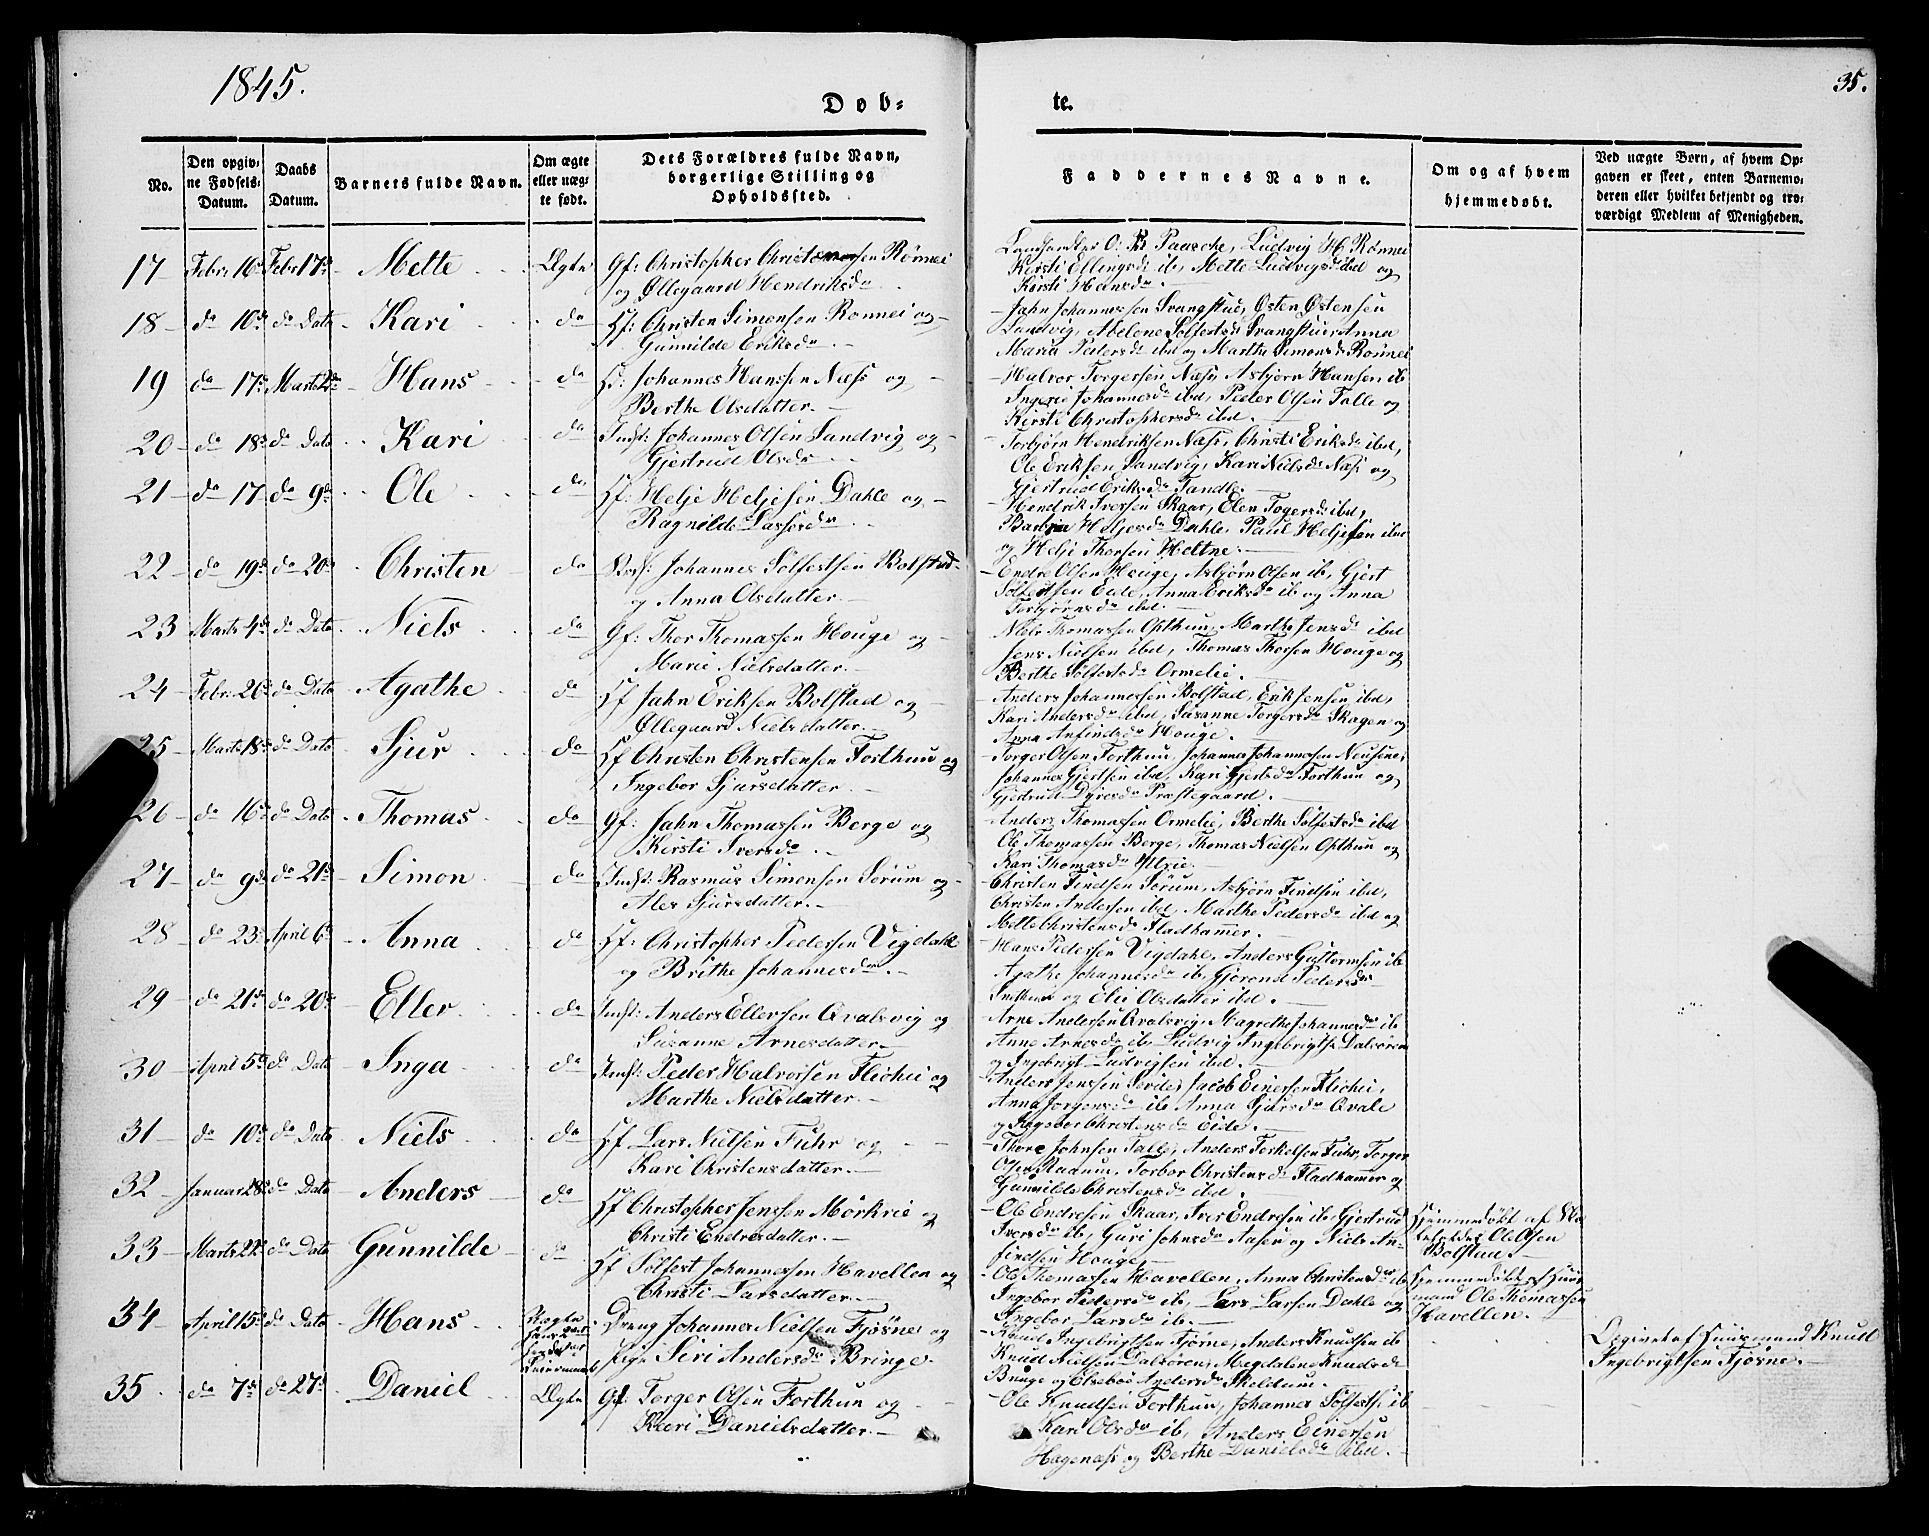 1845.
35.
Døb=
te.
No.
Den opgiv=
ne Fødsels=
Datum.
Daabs
Datum.
Barnets fulde Navn.
Om ægte
eller uæg=
te født.
Dets Forældres fulde Navn,
borgerlige Stilling og
Opholdssted.
Faddernes Navne.
Om og af hvem
hjemmedøbt.
Ved uægte Børn, af hvem Op=
gaven er skeet, enten Barnemo=
deren eller hvilket bekjendt og tro=
værdigt Medlem af Menigheden.
17 Febr: 16de Febr 17de Mette Ægte Gf: Christopher Christensen Rønnei
og Øllegaard Hendriksdr
O: B Paasche, Ludvig H. Rønnei
Kirsti Ellingsdr ib, Mette Ludvigsdr ibd og
Kirsti Hansdr.
18 do 10de do Dato Kari do Hf: Christen Simonsen Rønnei og
Gunnilde Eriksdr
Jahn Johannessen Svangstue, Østen Østensen
Sandvig, Abelone Solfestsdr Svangstue, Anna
Maria Pedersdr ibd og Marthe Simonsdr Rønnei
19 do 17de Marts 2de Hans do Hf: Johannes Hanssen Næss og
Berthe Olsdatter.
Halvor Torgersen Næss, Asbjørn Hansen ib
Ingerie Johannesdr ibd, Peder Olsen Talle og
Kirsti Christophersdr ibd.
20 do 18de do Dato Kari do Indst: Johannes Olsen Sandvig og
Gjertrud Olsdr
Torbjørn Hendriksen Næss, Christi Eriksdr ibd,
Ole Eriksen Sandvig, Kari Nielsdr Næss og
Gjertrud Eriksdr Tandle.
21 do 17 do 9de Ole do Hf: Helje Heljesen Dahle og
Ragnilde Lassesdr
Hendrik Iversen Skaar, Elen Togersdr ibd,
Heljesdr Dahle, Paul Heljesen ibd
og Helje Thorsen Heltne.
22 do 19de do 20de Christen do Johannes Solfestsen Bolstad
og Anna Olsdatter.
Endre Olsen Houge, Asbjørn Olsen ib, Gjert
Solfestsen Eide, Anna Eriksdr ib og Anna
Torbjørnsdr ibd.
23 Marts 4de do Dato Niels do Gf: Thor Thomassen Houge og
Marie Nielsdatter.
Niels Thomassen Opthun, Marthe Jensdr ibd
Jens Nielsen ibd, Thomas Thorsen Houge og
Berthe Solfestsdr Ormelie.
24 Febr. 26de do Dato Agathe do Hf Jahn Eriksen Bolstad og
Øllegaard Nielsdatter.
Anders Johannessen Bolstad, Erik Jensen ibd,
Kari Andersdr ibd, Susanne Torgersdr Skagen og
Anna Anfindsdr Houge.
25 Marts 18de do Dato Sjur do Hf Christen Christensen Forthun og
Ingebor Sjursdatter.
Torger Olsen Forthun, Johannes Johannessen
Johannes Gjertsen ibd, Kari Gjertsdr Forthun og
Gjertrud Præstegaard.
26 do 16de do Dato Thomas do Gf: Jahn Thomassen Berge og
Kirsti Iversdr
Anders Thomassen Ormelie, Berthe Solfestsdr ibd
Ole Thomassen Berge, Thomas Nielsen Opthun og
Kari Thomasdr Yttrie.
27 do 9de do 21de Simon do Indst: Rasmus Simonsen Sørum og
Ales Sjursdatter.
Christen Findsen Sørum, Asbjørn Findsen ibd,
Christen Andersen ibd, Marthe Pedersdr ibd og
Mette Christensdr Fladhammer.
28 do 23de April 6te Anna do Hf: Christopher Pedersen Vigdahl
og Brithe Johannesdr.
Hans Pedersen Vigdahl, Anders Guttormsen ib
Agathe Johannesdr ib, Gjørond Pedersdr
og Elie Olsdatter ibd.
29 do 21de do 20de Eller do Indst: Anders Ellersen Qvalsvig og
Susanne Arnesdatter
Arne Andersen Qvalsvig, Magrethe Johannesdr ib
Anne Arnesdr ib, Ludvig Ingebrigts. Dalsøren
og Ingebrigt Ludvigsen ibd.
30 April 5te do Dato Inga do Indst: Peder Halvorsen Flichie og
Marthe Nielsdatter.
Anders Jenssen Sevde, Jacob Einersen Flichie,
Anna Jørgensdr ib, Anna Sjursdr Qvale
og Ingebor Christensdr Eide.
31 do 10de do Dato Niels do Hf Lars Nielsen Fuhr og
Kari Christensdatter.
Thore Johnsen Talle, Anders Torkelsen Fuhr, Torger
Olsen Raanum, Torbor Christensdr Fladhammer og
Gunnilde Christensdr ibd.
32 Januar 28de do Dato Anders do Hf Christopher Jenssen Mørkrie og
Christi Endresdatter.
Ole Endresen Skaar, Iver Endresen ib, Gjertrud
Iversdr ib, Guri Johnsdr Aasen og Niels An=
findsen Houge,
Hjemmedøbt af
Ole Olsen
Bolstad.
33 Marts 22de do Dato Gunnilde do Hf Solfest Johannessen Havellen og
Christi Larsdatter.
Ole Thomassen Havellen, Anna Christensdr ib
Ingebor Pedersdr ib, Lars Larsen Dahle og
Ingebor Larsdr ib.
Hjemmedøbt af Huus=
mand Ole Thomassen
Havellen.
34 April 15de do Dato Hans Uægte Dreng Johannes Nielsen Fjøsne og
Pige Siri Andersdr Bringe.
Knud Ingebrigtsen Fjøsne, Anders Knudsen ib
Knud Nielsen Dalsøren, Magdalene Knudsdr
Bringe og Elsebe Andersdr Skeldum.
Opgivet af Huusmand Knud
Ingebrigtsen Fjøsne.
35 do 7de do 27de Daniel Ægte Gf: Torger Olsen Forthun og
Kari Danielsdatter.
Ole Knudsen Forthun, Johannes Solfests. ib
Kari Olsdr ib, Anders Einersen
Hagenæss og Berthe Danielsdr ibd.